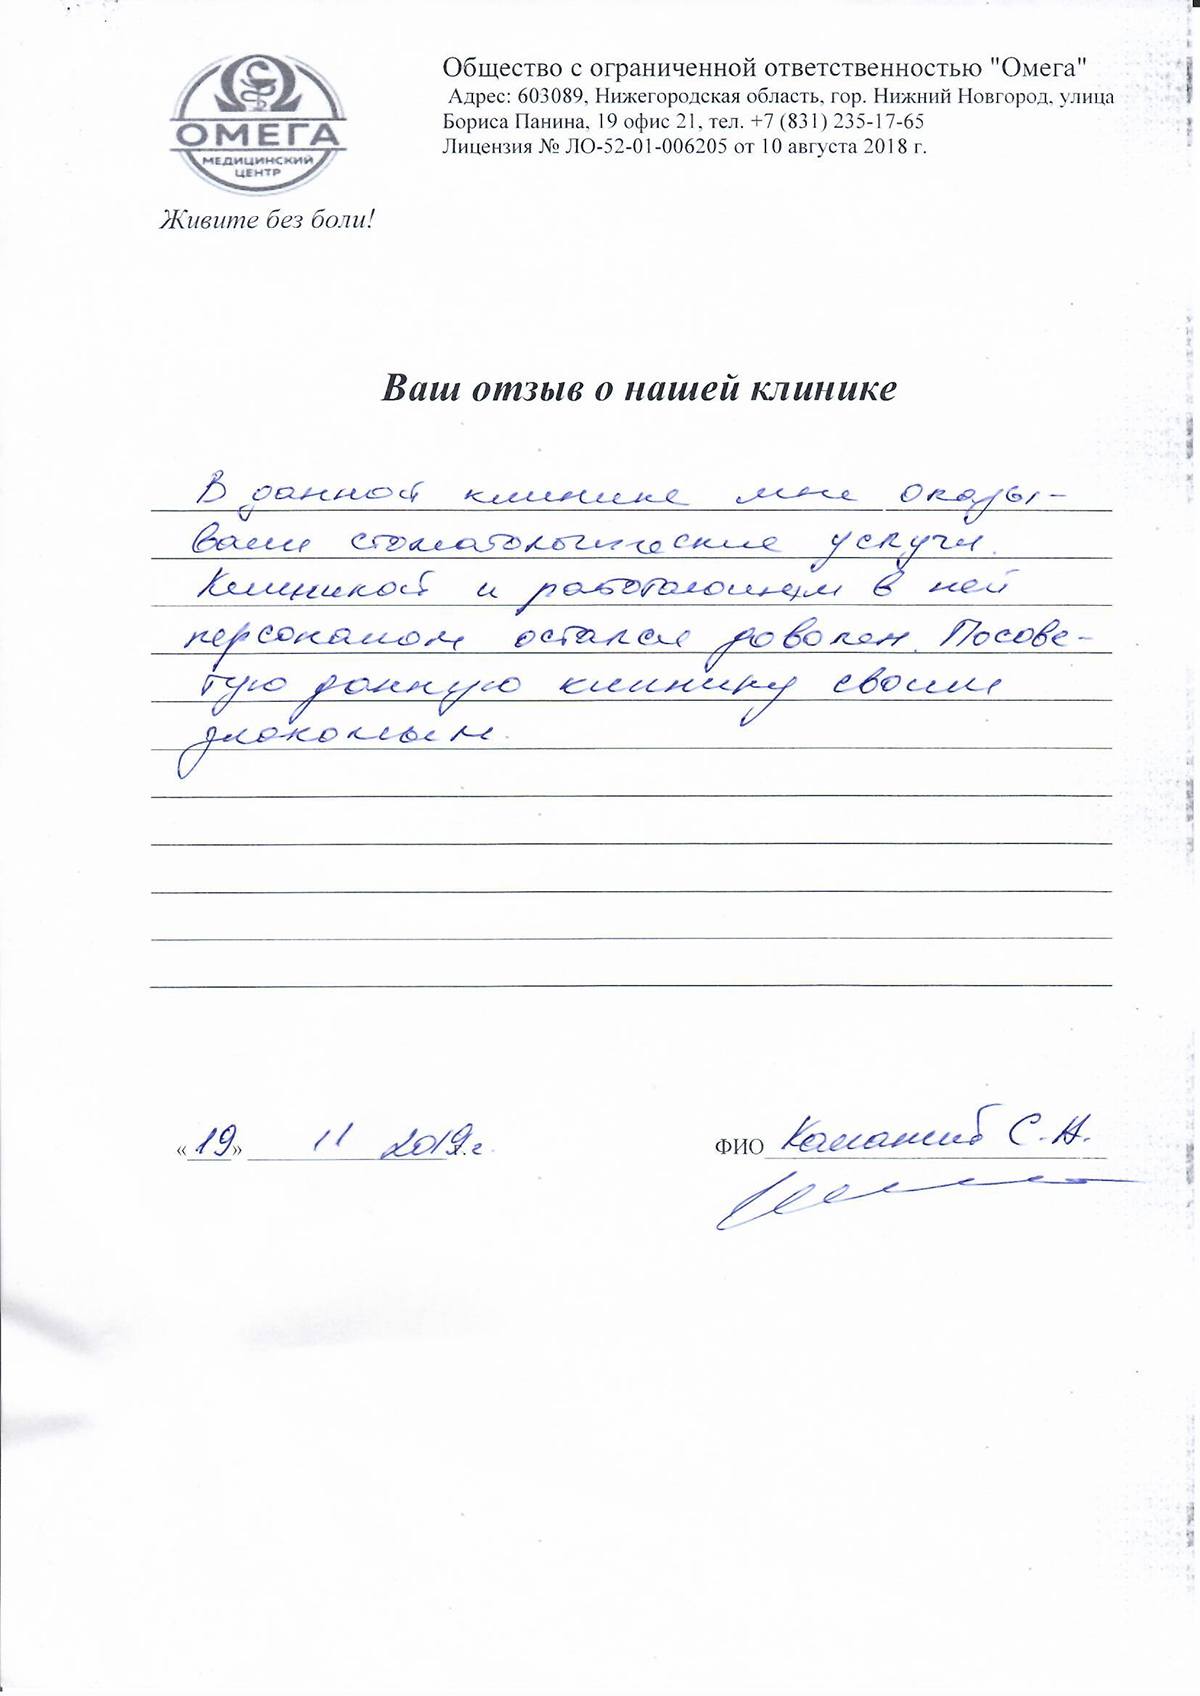 ОМЕГА
МЕДИЦИНСКИЙ
ЦЕНТР
Живите без боли!
Общество с ограниченной ответственностью "Омега"
Адрес: 603089, Нижегородская область, гор. Нижний Новгород, улица
Бориса Панина, 19 офис 21, тел. +7 (831) 235-17-65
Лицензия № ЛО-52-01-006205 от 10 августа 2018 г.
Ваш отзыв о нашей клинике
В данной клинике мне оказы-
вали стоматологические услуги.
Клиникой и работающем в ней
персоналом остался доволен. Посове-
тую данную клинику своим
знакомым.
«19» 11 2019г.
ФИО С. Н.